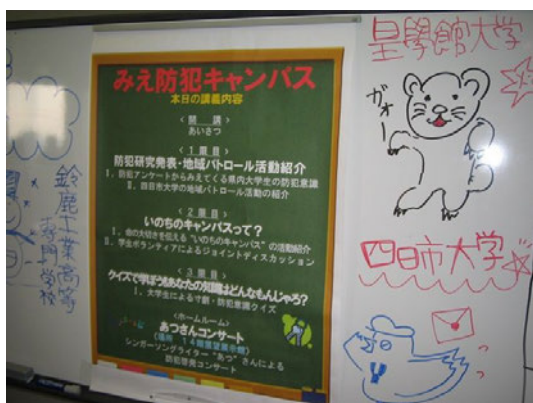 みえ防犯キャンパス
本日の講義内容
<開 講>
あいさつ
<1限目>
防犯研究発表・地域パトロール活動紹介
Ⅰ．防犯アンケートからみえてくる県内大学生の防犯意識
Ⅱ．四日市大学の地域パトロール活動の紹介
<2限目>
いのちのキャンパスって？
Ⅰ．命の大切さを伝える“いのちのキャンパス”の活動紹介
Ⅱ．学生ボランティアによるジョイントディスカッション
<3限目>
クイズで学ぼう!あなたの知識はどんなもんじゃろ？
Ⅰ．大学生による寸劇・防犯意識クイズ
<ホームルーム>
あつさんコンサート
シンガーソングライター“あつ”さんによる
防犯啓発コンサート
皇學館大学
ガオー
四日市大学
鈴鹿工業高等
専門学校